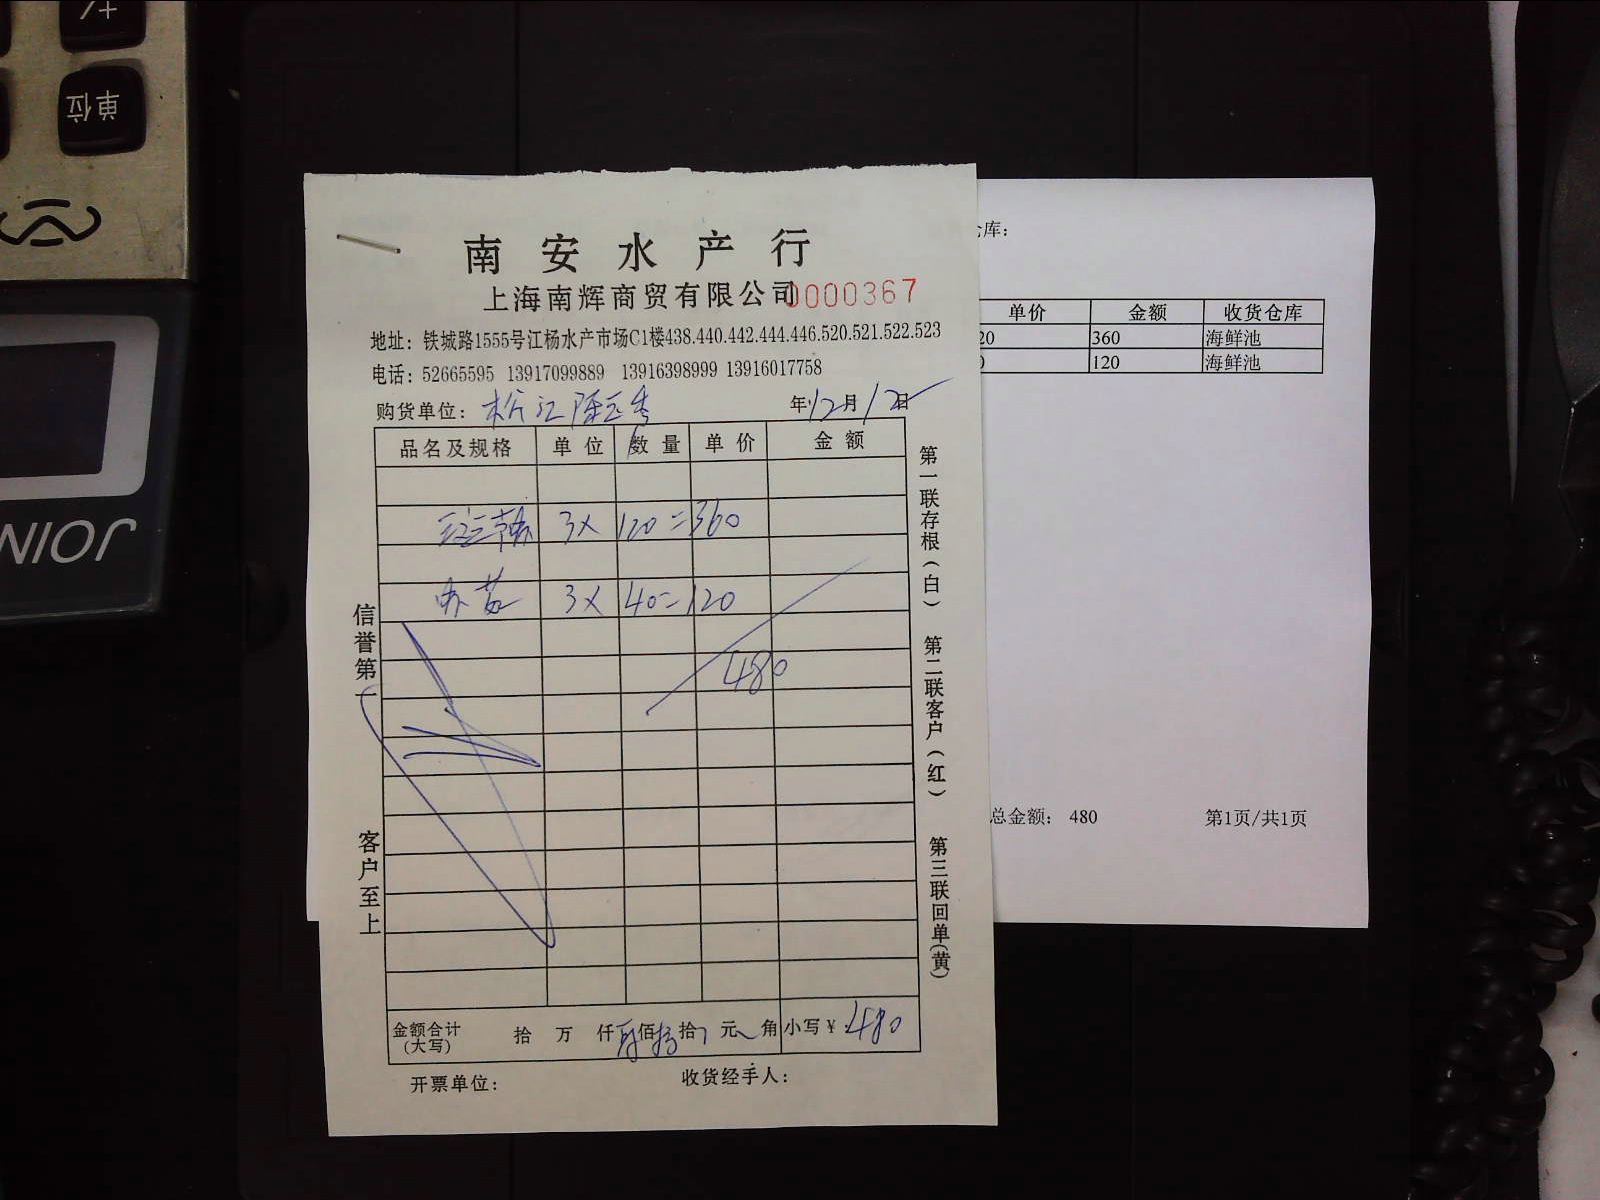 单位
JOIN
南安水产行
上海南辉商贸有限公司 0000367
地址：铁城路1555号江杨水产市场C1楼438.440.442.444.446.520.521.522.523
电话：52665595 13917099889 13916398999 13916017758
购货单位：松江 年12月12日
品名及规格 单位 数量 单价 金额
3× 120=360
3× 40=120
480
金额合计(大写) 拾 万 仟 佰 拾 元 角 小写￥480
开票单位： 收货经手人：
信誉第一
客户至上
第一联存根(白)
第二联客户(红)
第三联回单(黄)
库：
单价 金额 收货仓库
20 360 海鲜池
120 海鲜池
总金额： 480 第1页/共1页